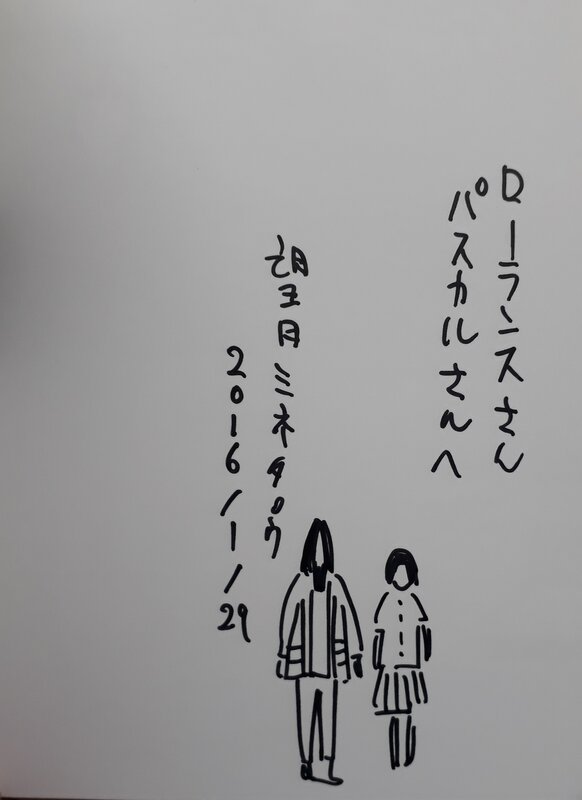 ローランスさん
パスカルさんへ
望月ミネタロウ
2016/1/29